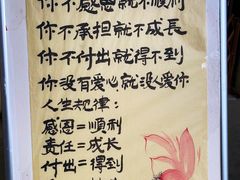 你不感恩就不順利
你不承担就不成長
你不付出就得不到
你没有爱心就没人爱你
人生规律：
感恩=順利
责任=成长
付出=得到